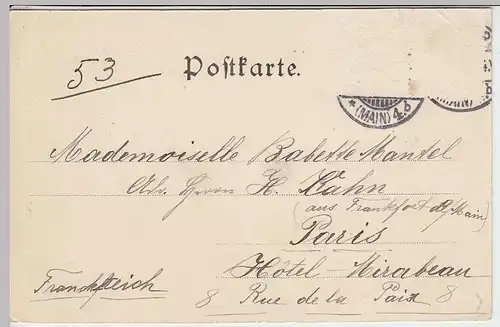 53
Postkarte.
* (MAIN) 4.b
Mademoiselle Babette Mantel
Adr. Herrn H. Kahn
(aus Frankfort a/Main)
Paris
Hôtel Mirabeau
Frankreich
8 Rue de la Paix 8